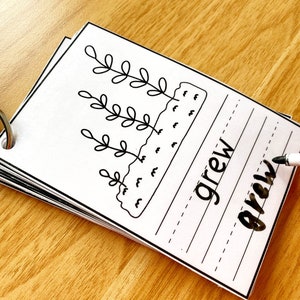 grew
grew